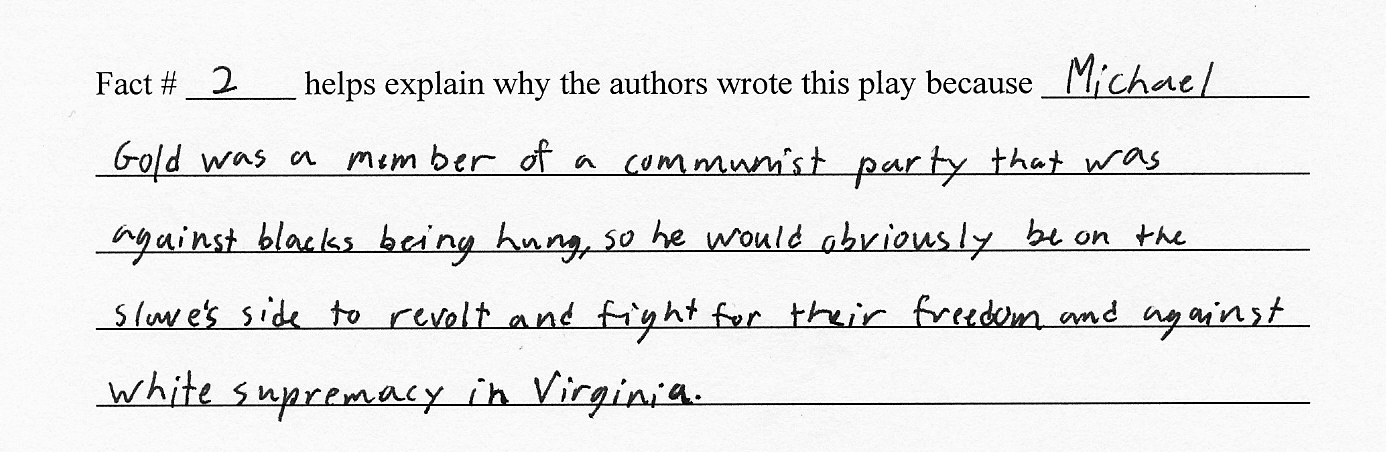 Fact # 2 helps explain why the authors wrote this play because Michael
Gold was a member of a communist party that was
against blacks being hung, so he would obviously be on the
slave's side to revolt and fight for their freedom and against
white supremacy in Virginia.